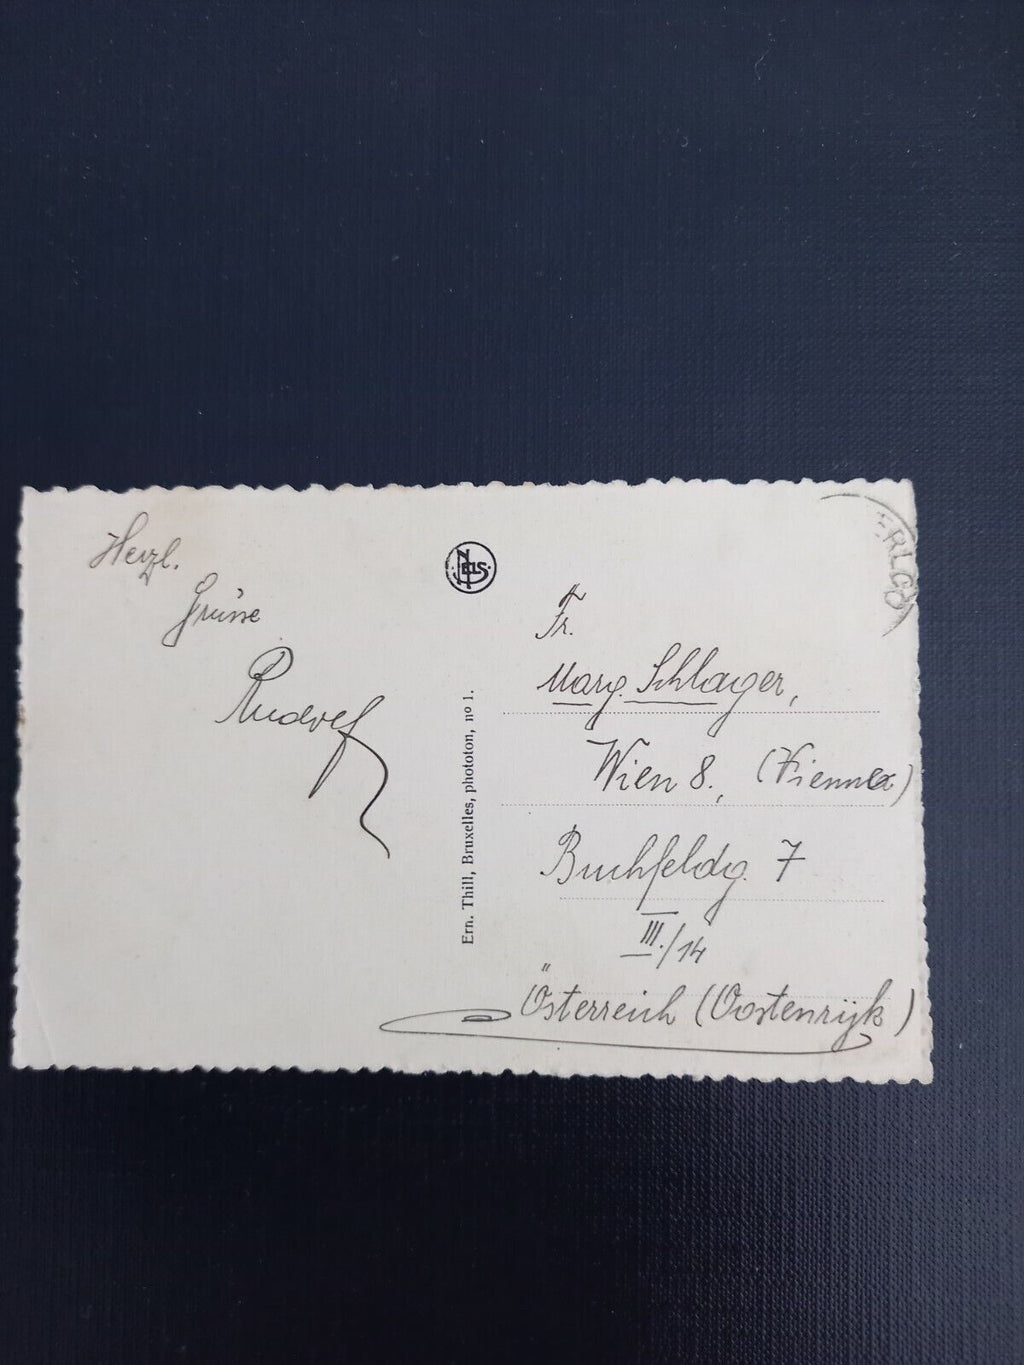 Herzl.
Grüsse
Rudolf
NELS
Ern. Thill, Bruxelles, phototon, nº 1.
Fr.
Marg. Schlager,
Wien 8., (Vienna)
Buchfeldg. 7
III./14
Österreich (Oostenrijk)